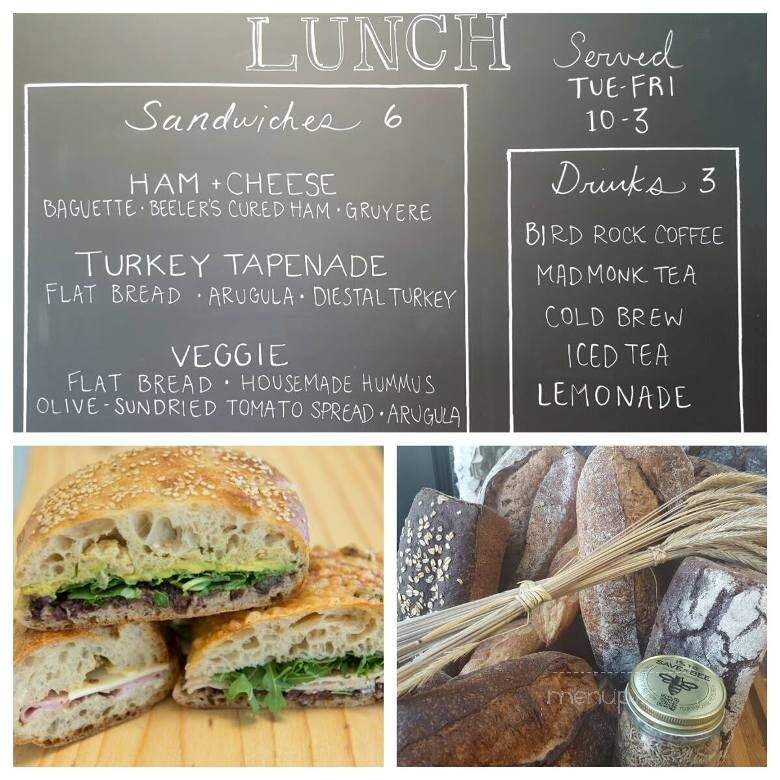 LUNCH
Served
TUE-FRI
10-3
Sandwiches 6
HAM + CHEESE
BAGUETTE · BEELER'S CURED HAM · GRUYERE
TURKEY TAPENADE
FLAT BREAD · ARUGULA · DIESTAL TURKEY
VEGGIE
FLAT BREAD · HOUSEMADE HUMMUS
OLIVE-SUNDRIED TOMATO SPREAD · ARUGULA
Drinks 3
BIRD ROCK COFFEE
MAD MONK TEA
COLD BREW
ICED TEA
LEMONADE
SAVE BEE
menup